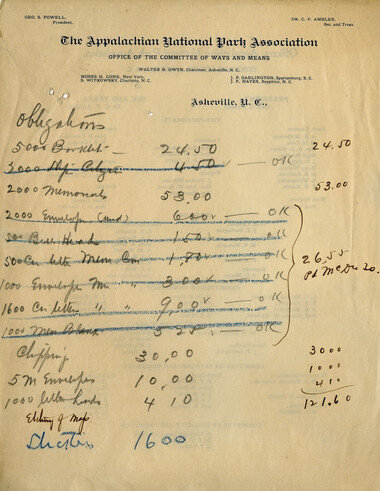 GEO. S. POWELL, President.
DR. C. P. AMBLER, Sec. and Treas.
The Appalachian National Park Association
OFFICE OF THE COMMITTEE OF WAYS AND MEANS
WALTER B. GWYN, Chairman, Asheville, N. C.
MOSES H. CONE, New York.
J. P. GARLINGTON, Spartanburg, S. C.
S. WITKOWSKY, Charlotte, N. C.
J. F. HAYES, Sapphire, N. C.
Asheville, N. C.,
Obligations
5000 Booklets 24.50 24.50
2000 4.50 OK
2000 Memorials 53.00 53.00
2000 Envelopes (und) 6.00 OK
500 Heads 1.50 OK
500 Cir letter Mem Com 1.80 OK
1000 Envelopes 3.00 OK
1600 Cir letter " " 9.00 OK
26.55
Pd
1000 Mem 3.25 OK
Clipping 30.00 30.00
5 M Envelopes 10.00 10.00
1000 letter heads 4 10 4 10
121.60
Etching of Map
16 00